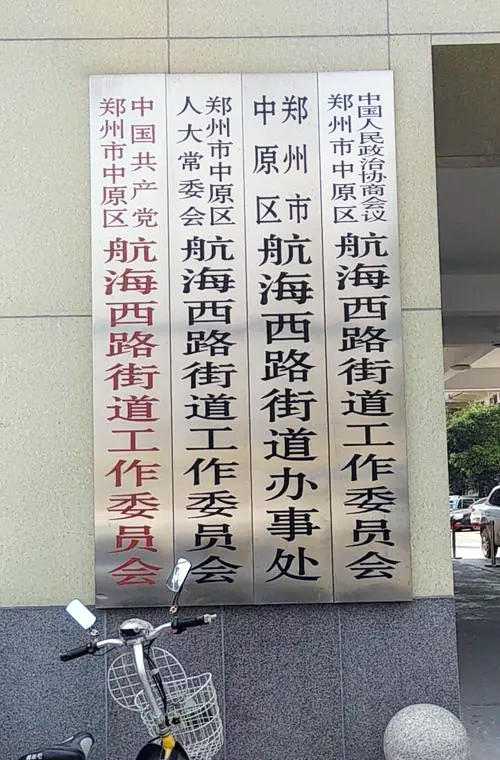 中国共产党
郑州市中原区
航海西路街道工作委员会
郑州市中原区
人大常委会
航海西路街道工作委员会
郑州市
中原区
航海西路街道办事处
中国人民政治协商会议
郑州市中原区
航海西路街道工作委员会